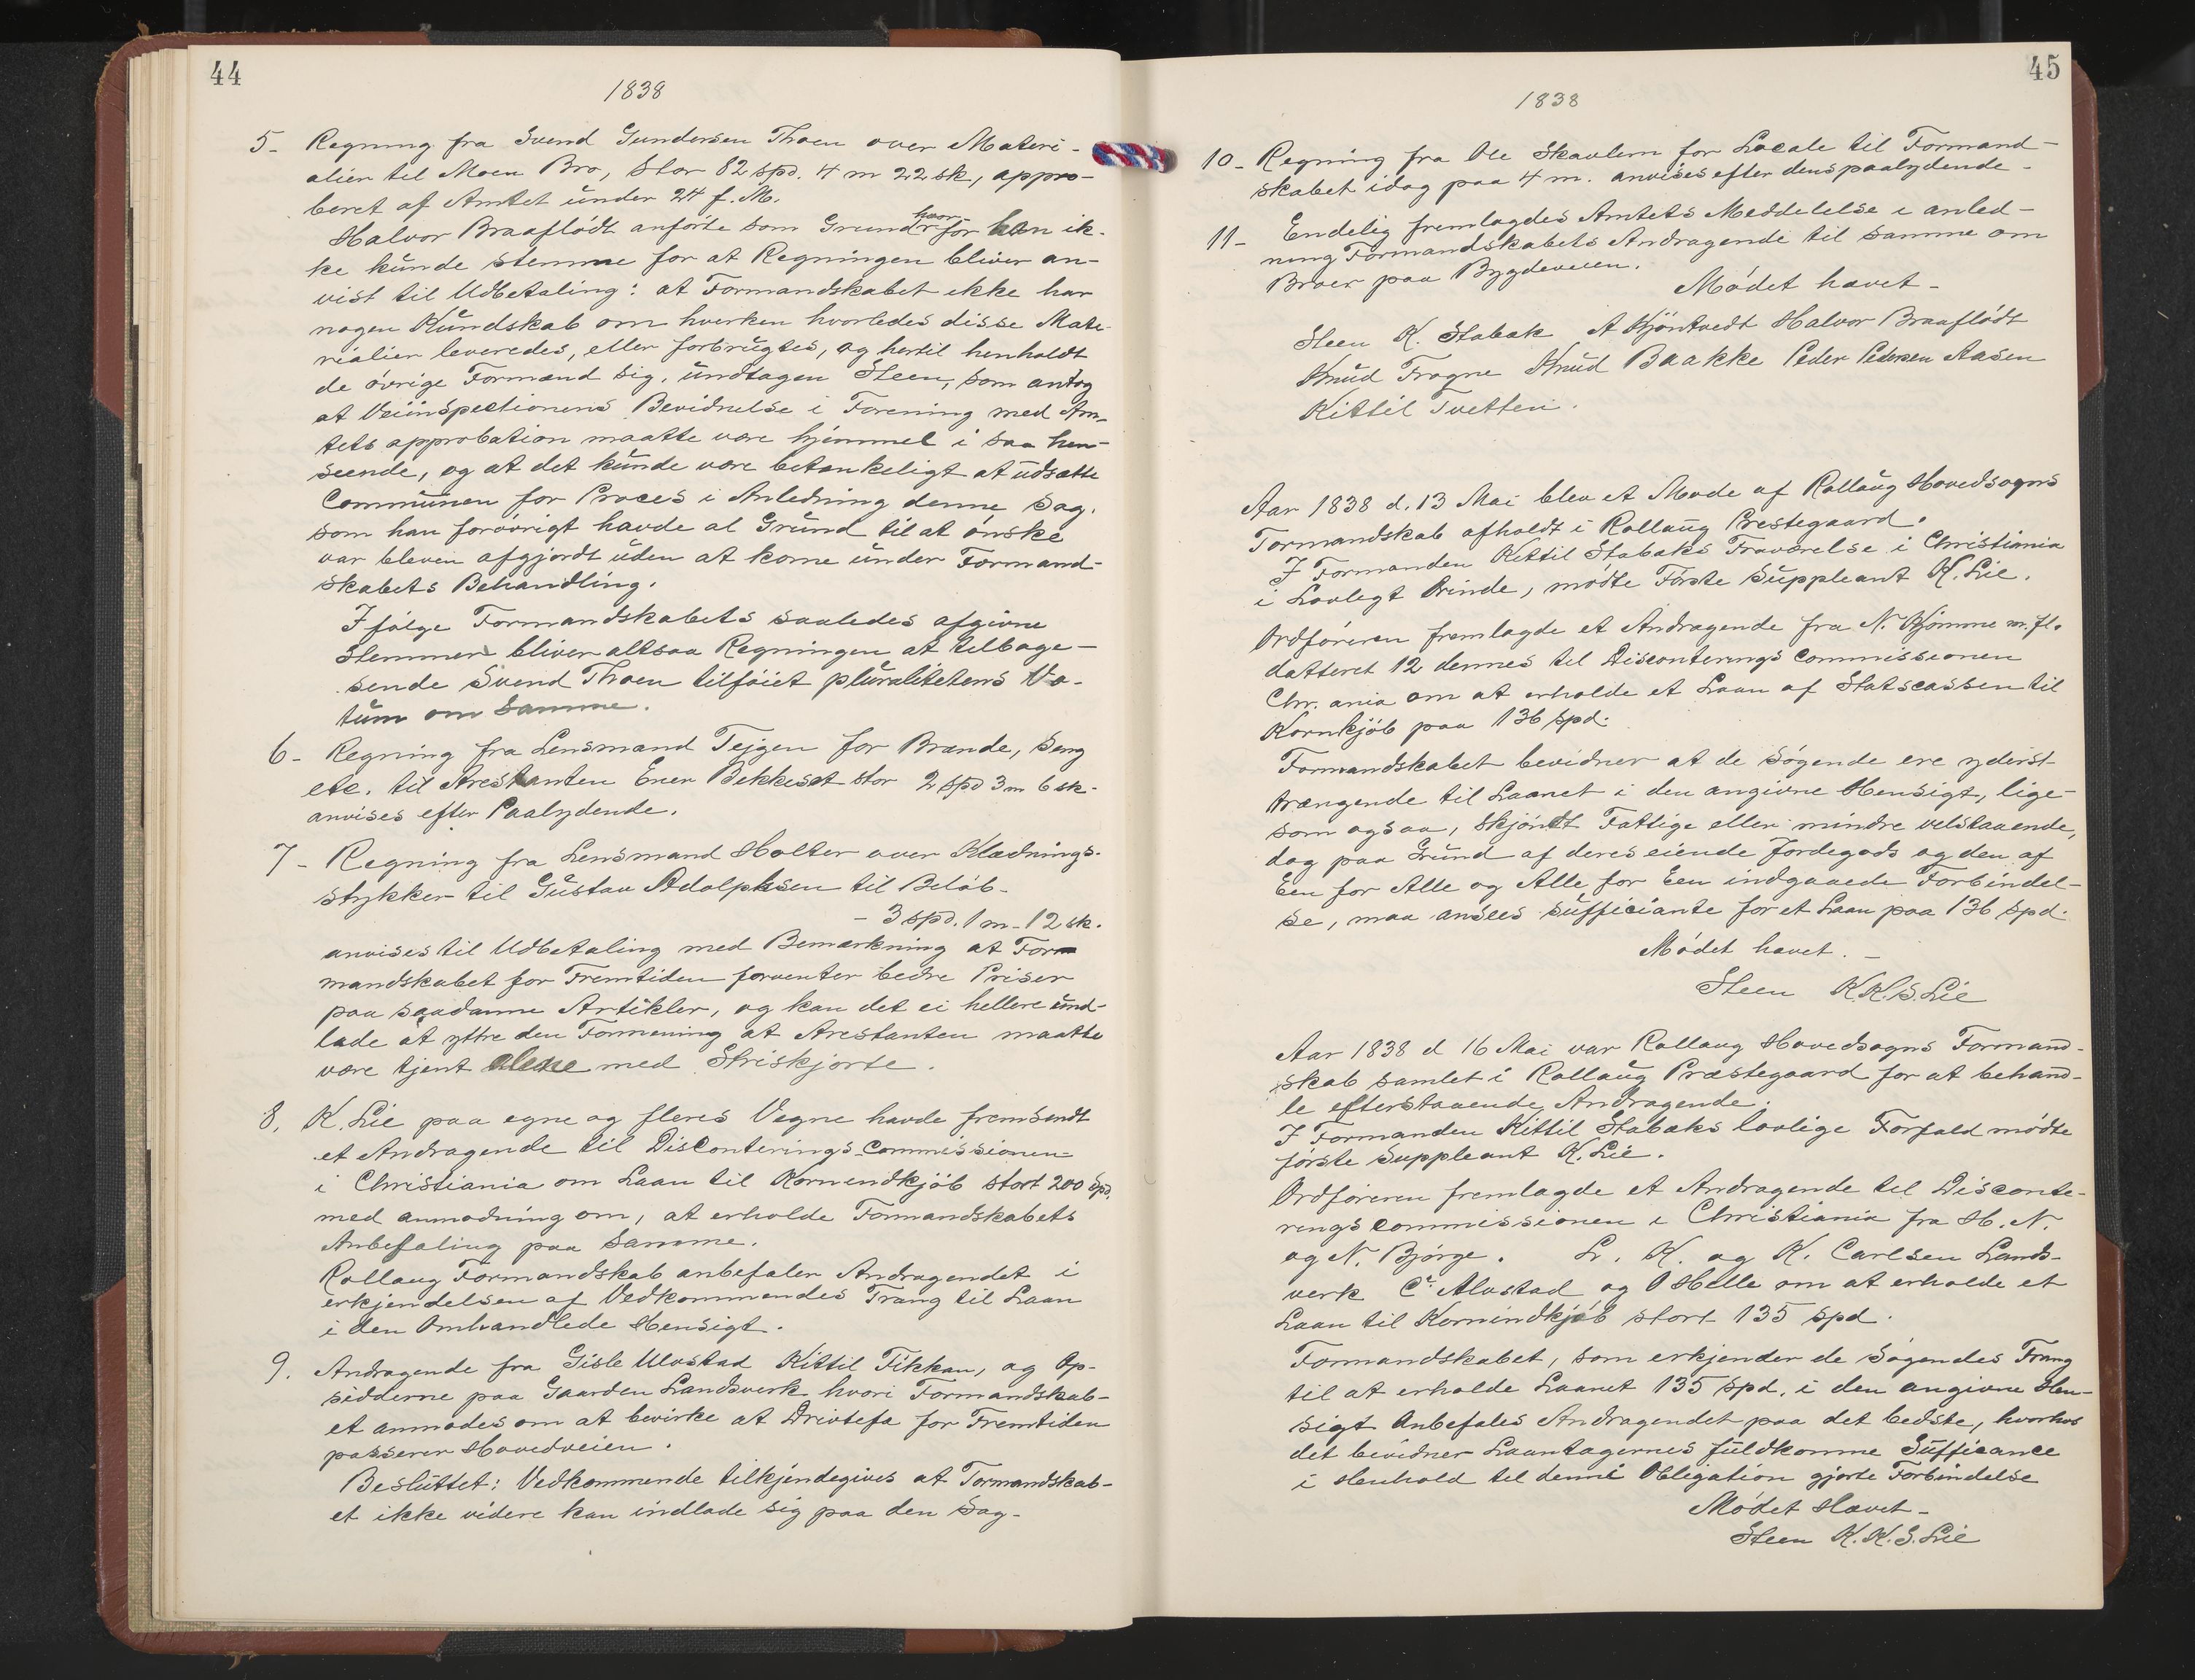 44
1838
5- Regning fra Svend Gundersen Thoen over Materi-
alier til Moen Bro, stor 82 spd. 4 m 22 sk, appro-
beret af Amtet under 24 f. M.
Halvor Braaflódt anførte som Grund hvorfor han ik-
ke kunde stemme for at Regningen bliver an-
vist til Udbetaling: at Formandskabet ikke har
nogen Kundskab om hverken hvorledes disse Mate-
rialier leveredes, eller forbrugtes, og hertil henholdt
de óvrige Formænd sig, undtagen Steen, som antog
at Veiinspectionens Bevidnelse i Forening med Am-
tets approbation maatte være hjemmel i saa hen-
seende, og at det kunde være betænkeligt at udsætte
Communen for Proces i Anledning denne Sag,
som han foróvrigt havde al Grund til at ónske
var bleven afgjordt uden at kome under Formand-
skabets Behandling.
Ifólge Formandskabets saaledes afgivne
Stemmer bliver altsaa Regningen at tilbage-
sende Svend Thoen tilfóiet pluralitetens Vo-
tum om samme.
6- Regning fra Lensmand Tejgen for Brænde, Seng
etc. til Arestanten Ener Bekkeset stor 2 spd 3 m 6 sk-
anvises efter Paalydende.
7- Regning fra Lensmand Holter over Klædnings-
stykker til Gustav Adolphsen til Belób-
- 3 spd. 1 m - 12 sk.
anvises til Udbetaling med Bemærkning at For-
mandskabet for Fremtiden forventer bedre Priser
paa saadanne Artikler, og kan det ei hellere und-
lade at yttre den Formening at Arestanten maatte
være tjent alene med Striskjorte.
8. K. Lie paa egne og fleres Vegne havde fremsendt
et Andragende til Disconterings-Commissionen
i Christiania om Laan til Kornindkjób stort 200 Spd.
med anmodning om, at erholde Formandskabets
Anbefaling paa samme.
Rollaug Formandskab anbefaler Andragendet i
erkjendelsen af Vedkommendes Trang til Laan
i den Omhandlede Hensigt.
9. Andragende fra Gisle Ulvstad Kittil Fikkan, og Op-
sidderne paa Gaarden Landsverk hvori Formandskab-
et anmodes om at bevirke at Driftefæ for Fremtiden
passerer Hovedveien.
Besluttet: Vedkommende tilkjendegives at Formandskab-
et ikke videre kan indlade sig paa den Sag-
45
1838
10- Regning fra Ole Skavlem for Locale til Formand-
skabet idag paa 4 m. anvises efter dens paalydende-
11- Endelig fremlagdes Amtets Meddelelse i anled-
ning Formandskabets Andragende til samme om
Broer paa Bygdeveien.
Módet hævet-
Steen K. Stabæk A Kjöntvedt Halvor Braaflódt
Knud Fragne Knud Baakke Peder Pedersen Aasen
Kittil Tvetten.
Aar 1838 d. 13 Mai blev et Møde af Rollaug Hovedsogns
Formandskab afholdt i Rollaug Prestegaard.
I Formanden Kittil Stabæks Fraværelse i Christiania
i Lovlegt Ærinde, módte Fórste Suppleant K. Lie.
Ordfóreren fremlagde et Andragende fra N. Kjómme m. fl.
datteret 12 dennes til Disconterings Commissionen
Chr. ania om at erholde et Laan af Statscassen til
Kornkjób paa 136 spd.
Formandskabet bevidner at de Sógende ere yderst
trængende til Laanet i den angivne Hensigt, lige-
som ogsaa, skjóndt Fattige eller mindre velstaaende,
dog paa Grund af deres eiende Jordegods og den af
Een for Alle og Alle for Een indgaaede Forbindel-
se, maa ansees sufficiante for et Laan paa 136 spd.
Módet hævet. -
Steen K.K.S. Lie
Aar 1838 d 16 Mai var Rollaug Hovedsogns Formand-
skab samlet i Rollaug Præstegaard for at behand-
le efterstaaende Andragende.
I Formanden Kittil Stabæks lovlige Forfald módte
fórste Suppleant K. Lie.
Ordfóreren fremlagde et Andragende til Disconte-
ringscommissionen i Christiania fra H. N.
og N. Bjórge. L. K. og K. Carlsen Lands-
verk Cr. Alvstad og O Helle om at erholde et
Laan til Kornindkjób stort 135 spd.
Formandskabet, som erkjender de Sógendes Trang
til at erholde Laanet 135 spd. i den angivne Hen-
sigt Anbefales Andragendet paa det bedste, hvorhos
det bevidner Laantagernes fuldkomne Sufficance
i Henhold til denne Obligation gjorte Forbindelse
Módet Hævet-
Steen K.K.S. Lie